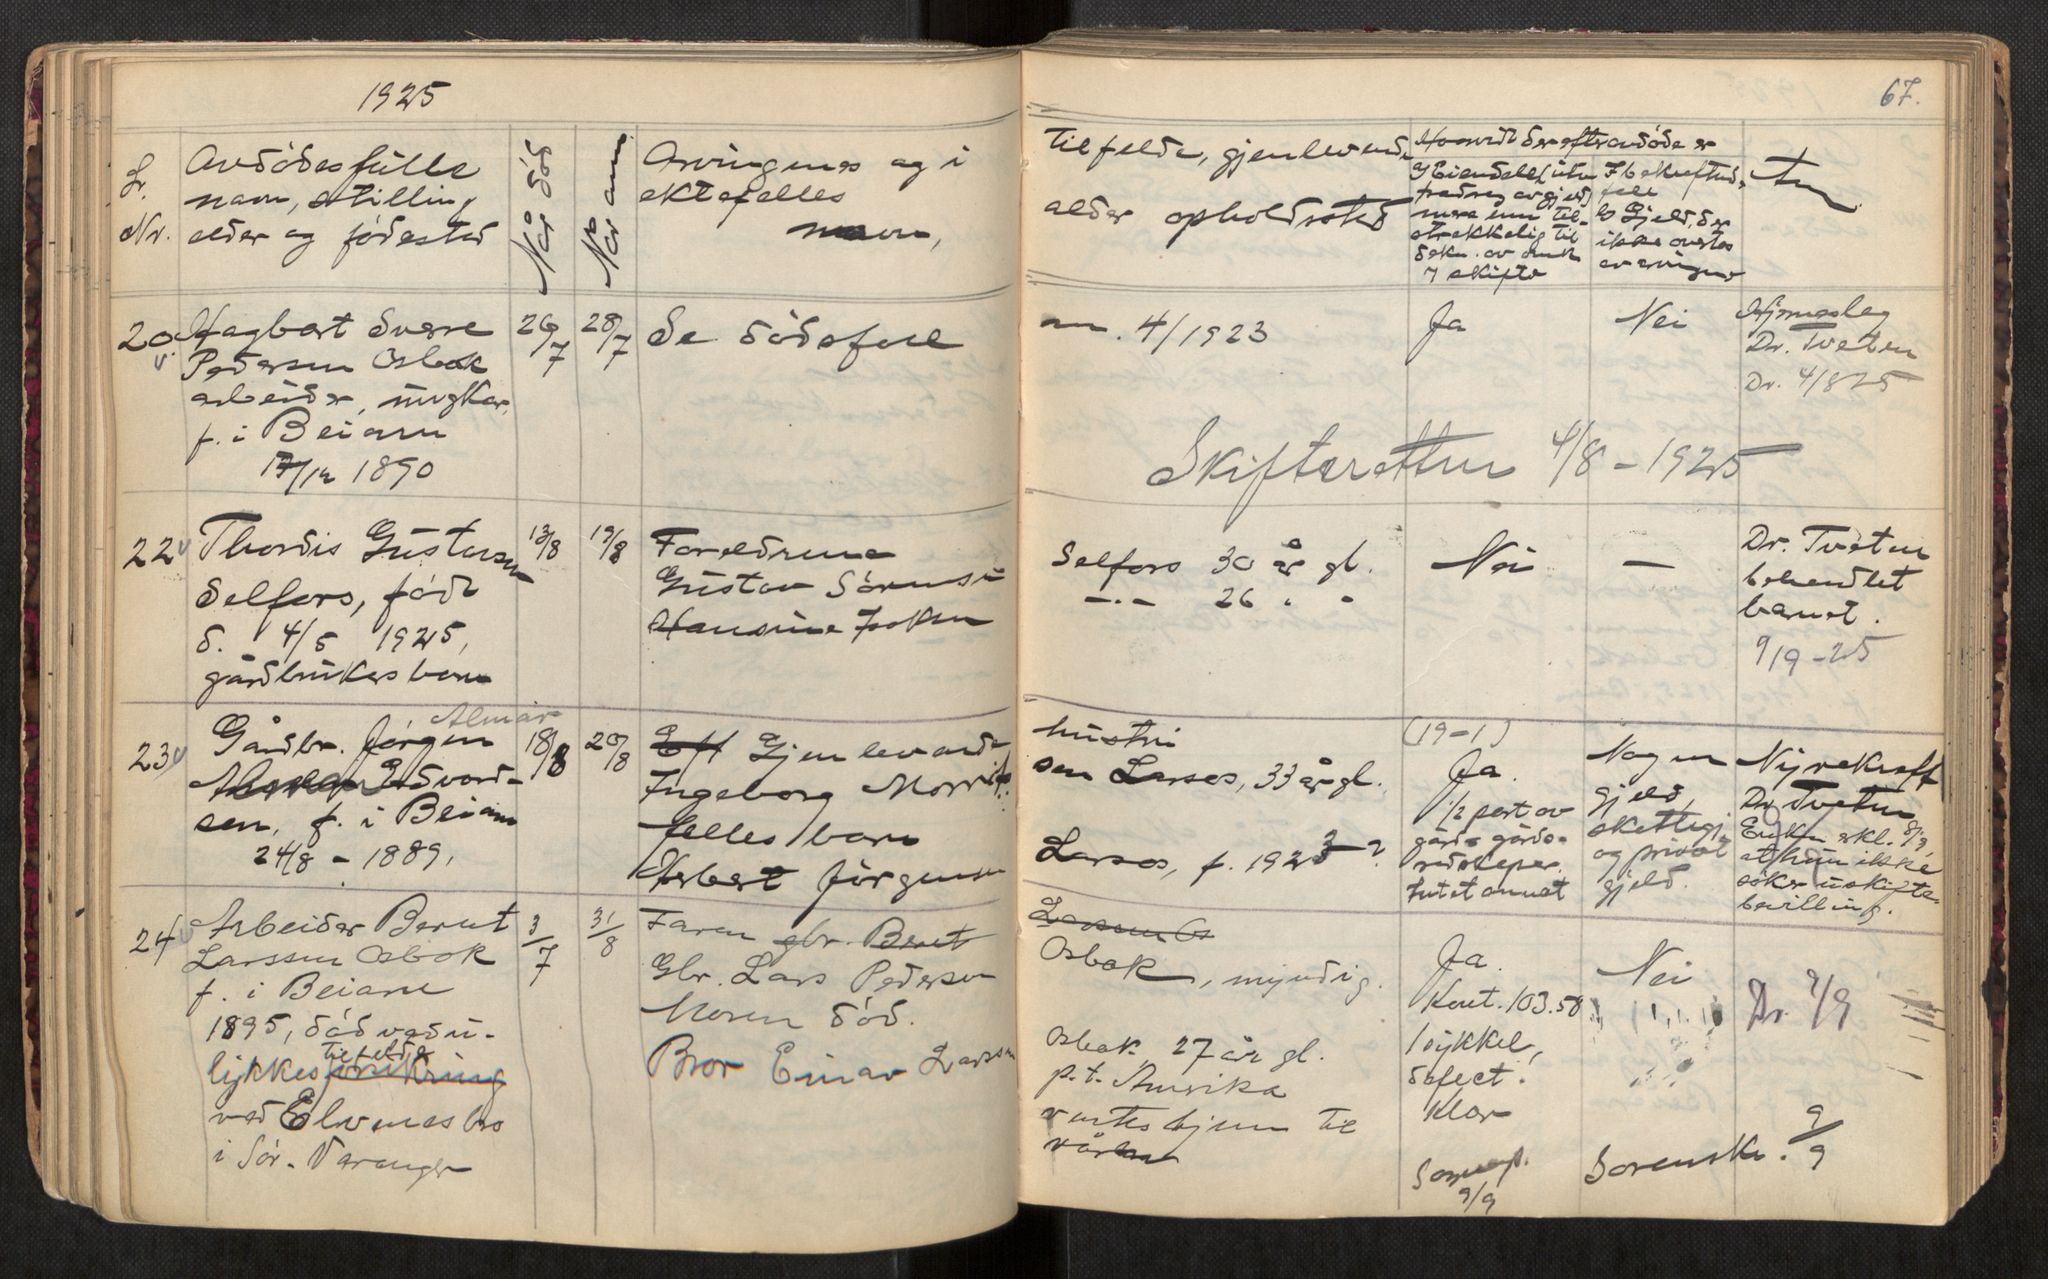 1925
67.
Lr.
Nr.
Avdödes fulle
navn, stilling
alder og födested
Når död
Når anm.
Arvingenes og i
ektefelles
navn,
tilfelde, gjenlevende
alder opholdssted
Hvorvidt der efter avdöde er
mere enn til-
strekkelig til
b Gjeld, der
ikke overtas
av arvingene
20 v.
Hagbart Sverre
Pedersen Osbak
arbeider, ungkar,
f. i Beiarn
17/12 1890
26/7
28/7
Se dödsfall
nr. 4/1923
Ja
Nei
Dr. Tveten
Dr. 4/8 25
Skifteretten 4/8 - 1925
22 v
Thordis Gustavsen
Selfors, födt
d. 4/5 1925,
gårdbrukers barn
13/8
19/8
Foreldrene
Gustav Sörensen
Hansine Isaksen
Selfors 30 år gl.
-"- 26 " "
Nei
—
Dr. Tveten
behandlet
barnet.
9/9-25
23 v
Almar
Gårdbr. Jörgen
Edvard-
sen, f. i Beiarn
24/8 - 1889,
18/8
20/8
Eft Gjenlevende
Ingeborg Morrit-
felles barn
Herbert Jörgensen
hustru
sen Larsos, 33 år gl.
Larsos, f. 1923 ?
(19-1)
Ja.
1/2 part av
gård & gårds-
redskaper.
Intet annet
Nogen
gjeld,
skattegj.
og privat
gjeld.
Nyrekreft
Dr. Tveten
Enken erkl. 8/9
at hun ikke
söker uskifte-
bevilling.
24 v
Arbeider Bernt
Larssen Osbak
f. i Beiarn
1895, död ved u-
tilfelde
lykkesforsikring
ved Elvenes bro
i Sör-Varanger
3/7
31/8
Faren gbr. Bernt
Gbr. Lars Pedersen
Moren död.
Bror Einar Larssen
Larssen Os
Osbak, myndig.
Osbak 27 år gl.
p.t. Amerika
ventes hjem til
våren
Ja.
Kont. 103.50
1 sykkel,
defect.
klær
9/9
Nei
Dr. 9/9
Sorenskr. 9/9